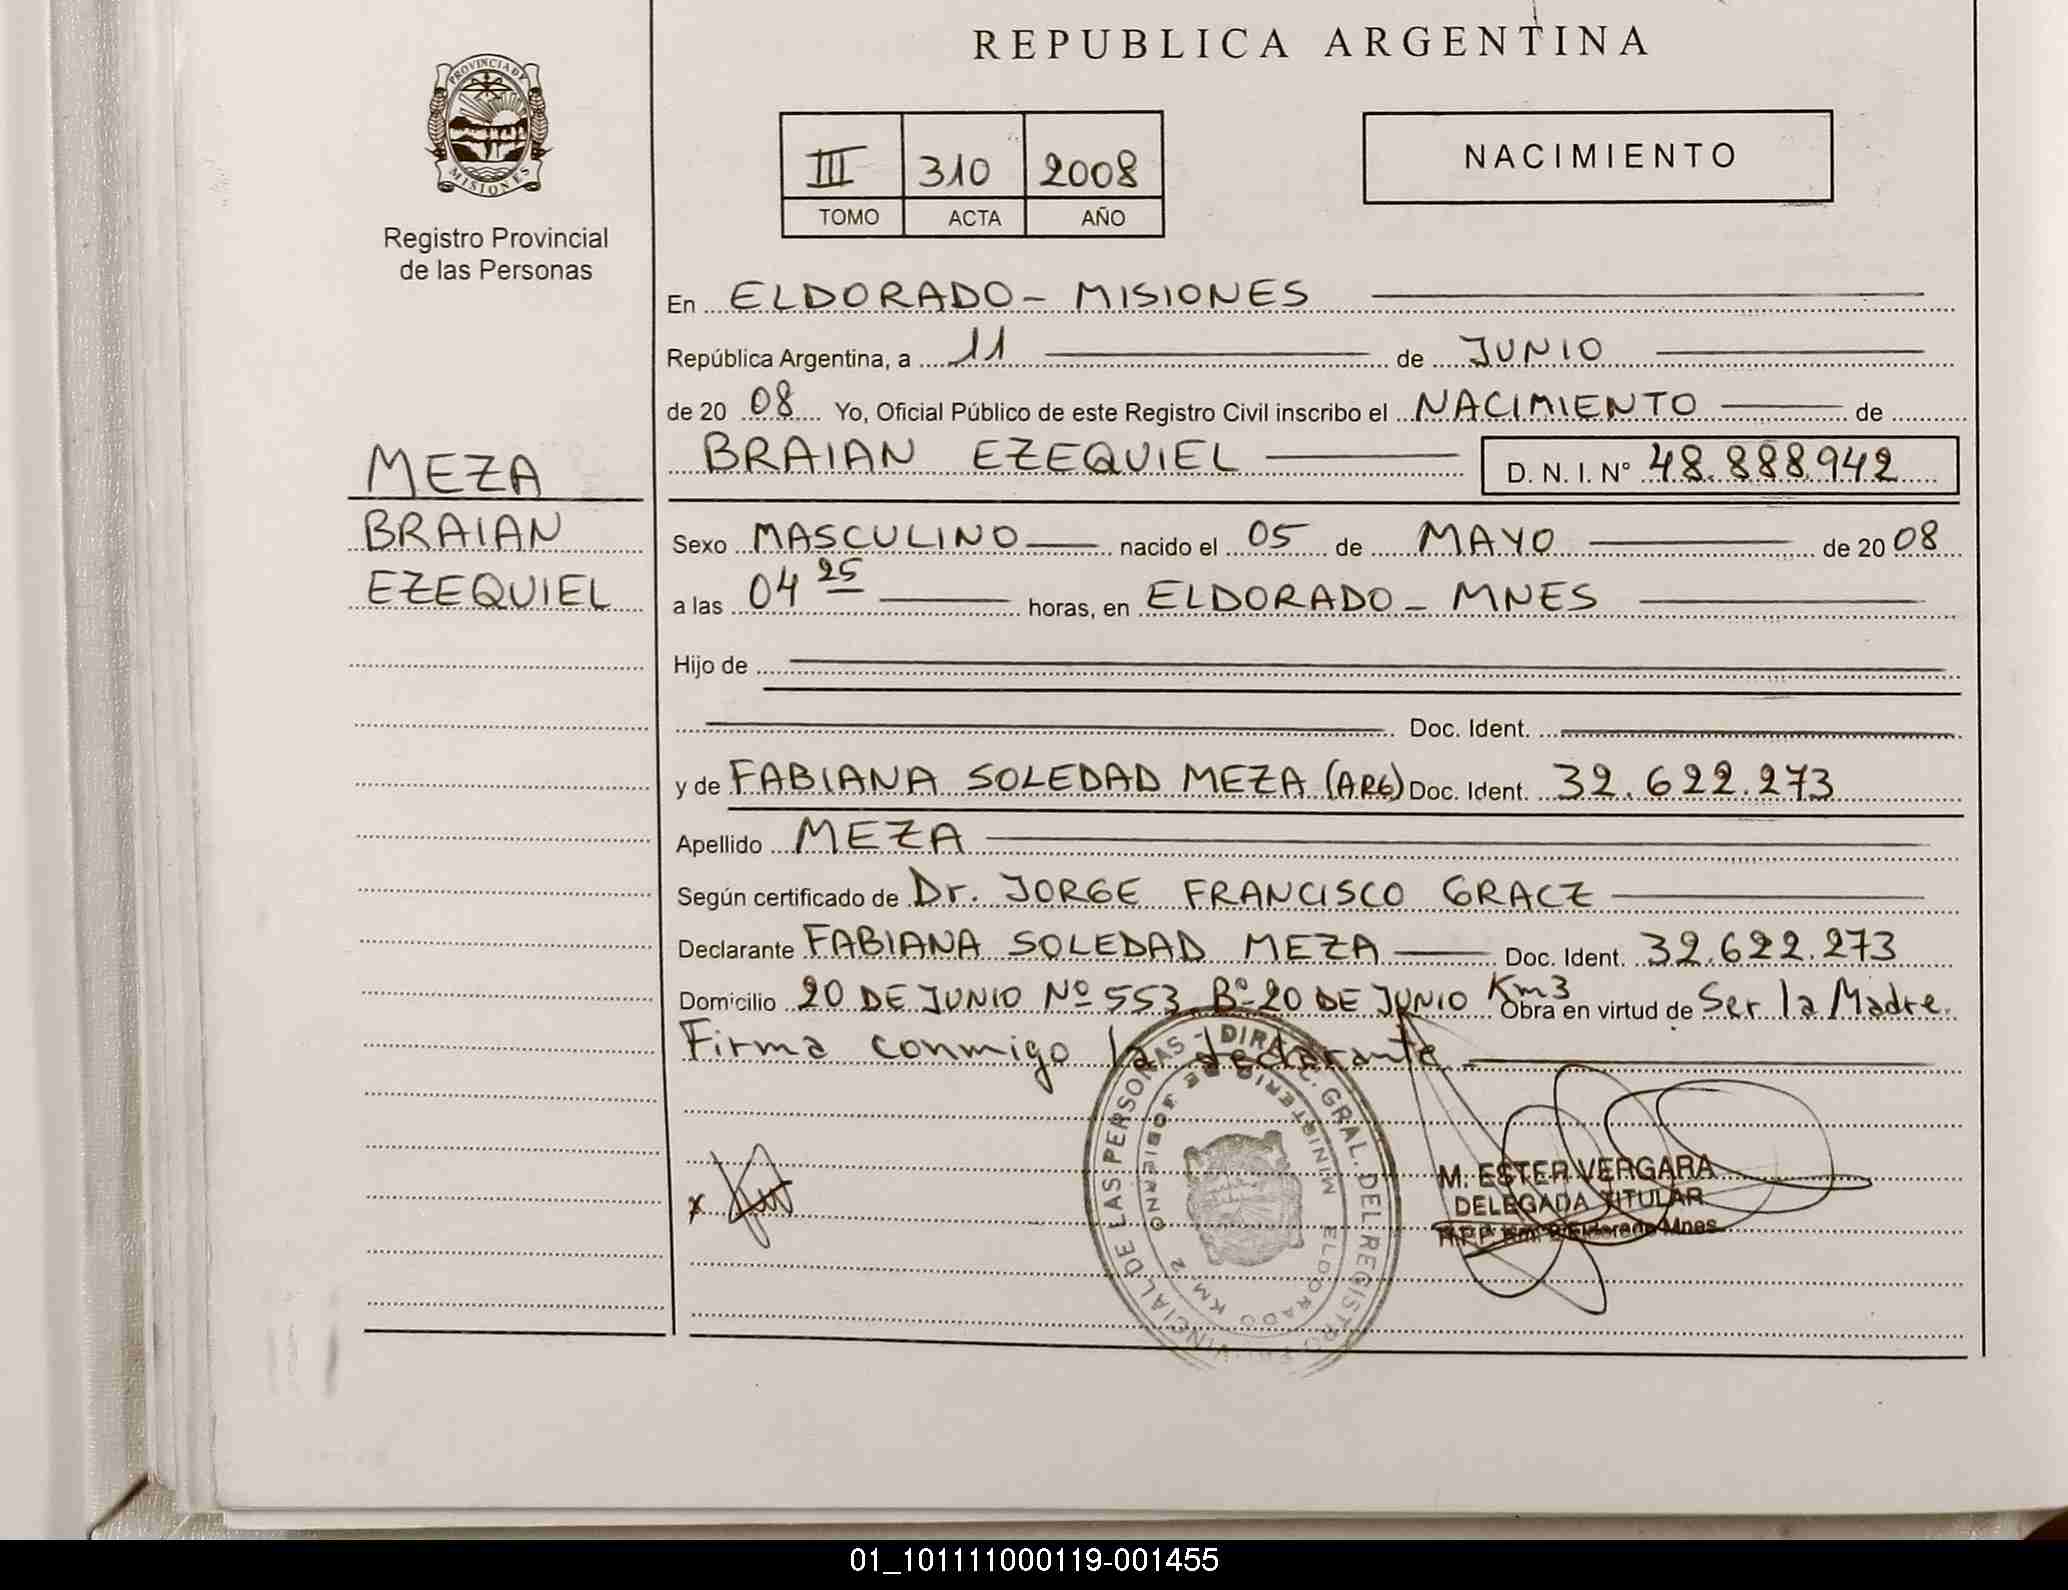 REPUBLICA ARGENTINA
PROVINCIA DE MISIONES
Registro Provincial
de las Personas
III 310 2008
TOMO ACTA AÑO
NACIMIENTO
En ELDORADO - MISIONES
República Argentina, a 11 de JUNIO
de 20 08 Yo, Oficial Público de este Registro Civil inscribo el NACIMIENTO de
BRAIAN EZEQUIEL D. N. I. N° 48.888.942
MEZA
BRAIAN
EZEQUIEL
Sexo MASCULINO nacido el 05 de MAYO de 20 08
a las 04 25 horas, en ELDORADO - MNES
Hijo de
Doc. Ident.
y de FABIANA SOLEDAD MEZA (ARG) Doc. Ident. 32.622.273
Apellido MEZA
Según certificado de Dr. JORGE FRANCISCO GRACZ
Declarante FABIANA SOLEDAD MEZA Doc. Ident. 32.622.273
Domicilio 20 DE JUNIO Nº 553 Bº 20 DE JUNIO Km3 Obra en virtud de Ser la Madre.
Firma conmigo la declarante
DIR GRAL. DEL REGISTRO PROVINCIAL DE LAS PERSONAS -
MINISTERIO DE GOBIERNO
ELDORADO KM 2
x
M. ESTER VERGARA
DELEGADA TITULAR
Eldorado Mnes
01_101111000119-001455